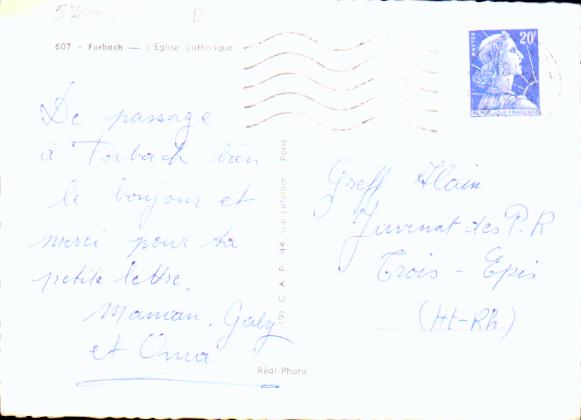 607 - Forbach — L'Eglise Catholique
POSTES
20F
De passage
à Forbach bien
le bonjour et
merci pour ta
petite lettre.
Maman. Gaby
et Oma
C. A. P., 44, rue Letellier - Paris
Réal-Photo
Greff Alain
Juvenat des P. R
Trois - Epis
(Ht-Rh.)